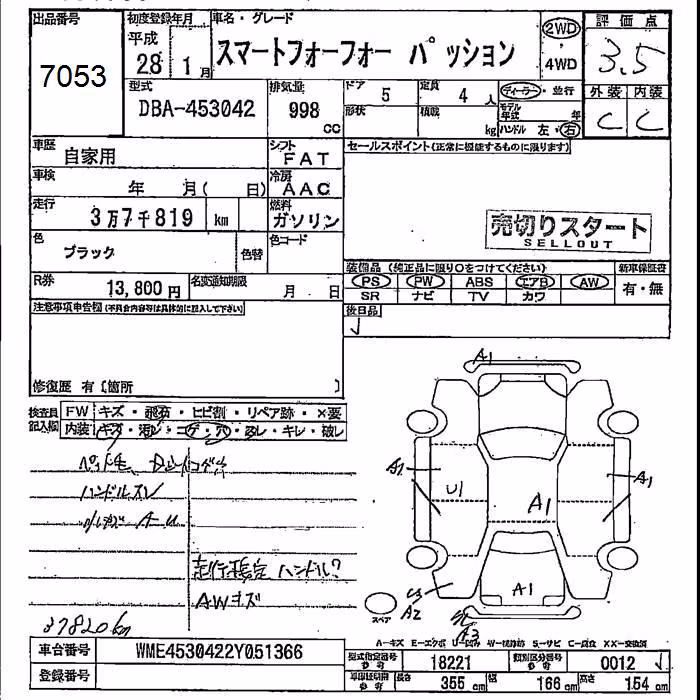 出品番号
7053
初度登録年月
平成
28 1月
車名・グレード
スマートフォーフォー パッション
2WD
4WD
評価点
3.5
外装 内装
C C
型式
DBA-453042
排気量
998
cc
ドア 5
定員 4人
ディーラー・並行
形状
積載 kg
モデル年式 年
ハンドル 左・右
車歴
自家用
シフト
FAT
セールスポイント(正常に機能するものに限ります)
車検
年 月( 日)
冷房
AAC
走行
3万7千819 km
燃料
ガソリン
売切りスタート
SELLOUT
色
ブラック
色替
色コード
R券
13,800円
名変通知期限
月 日
装備品(純正品に限り○をつけてください)
新車保証書
PS PW ABS エアB AW
SR ナビ TV カワ
有・無
注意事項申告欄(不具合内容等は具体的に記入して下さい)
後日品
修復歴 有〔箇所 〕
検査員記入欄
FW キズ・飛石・ヒビ割・リペア跡・×要
内装 キズ・汚レ・コゲ・穴・スレ・キレ・破レ
ハンドルスレ
A-U
走行管定 ハンドル?
AWキズ
37820km
A1
A2
U1
A1
A1
A1
A2
A3
スペア
車台番号
WME4530422Y051366
登録番号
型式指定番号
参考
18221
類別区分番号
参考
0012
長さ 355cm
幅 166cm
高さ 154cm